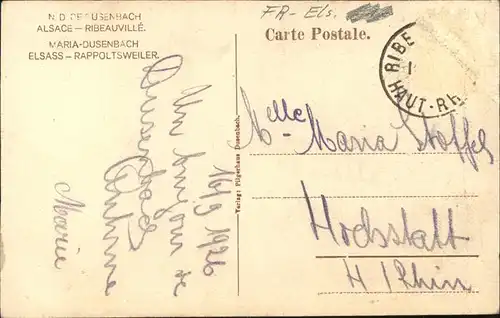 N. D. DE DUSENBACH
ALSACE - RIBEAUVILLÉ.
MARIA-DUSENBACH
ELSASS - RAPPOLTSWEILER.
FR-Els.
Carte Postale.
RIBE
HAUT-RH
16/9 1926
Un bonjour de
Dusenbach
Antoine
Marie
Verlag: Pilgerhaus Dusenbach.
Melle Maria Stoffel
Hochstatt
H/Rhin